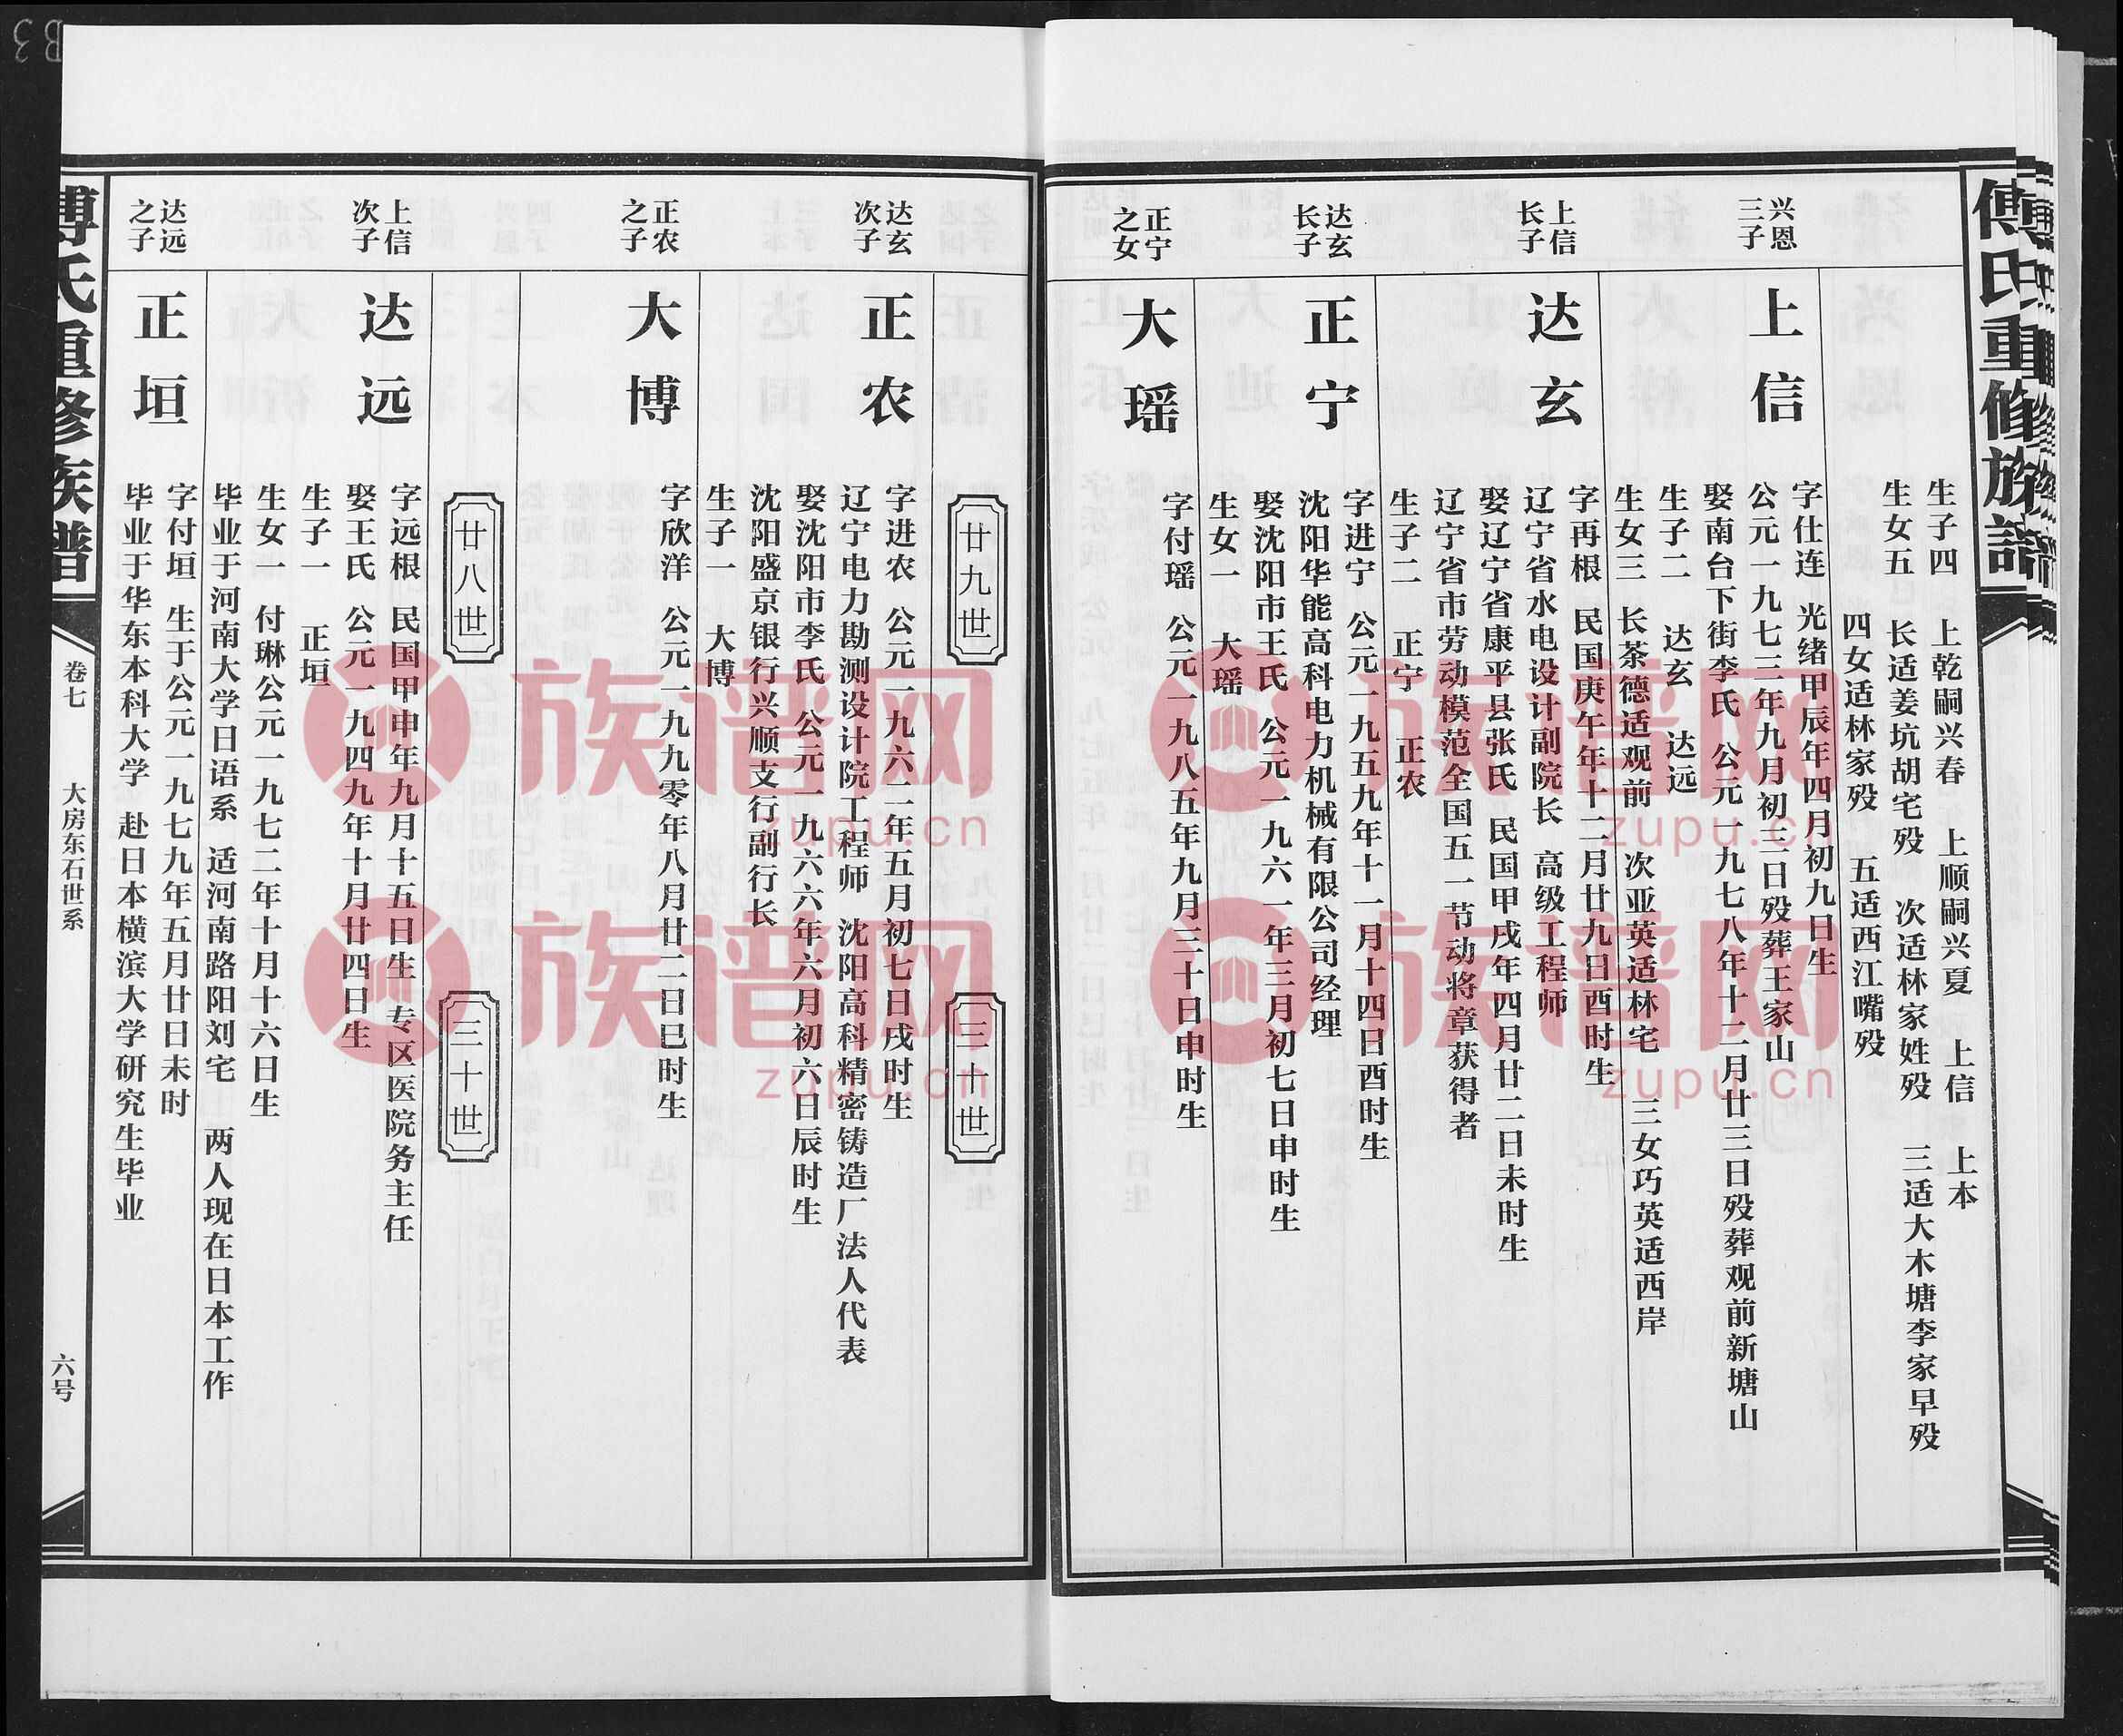 傅氏重修族谱
生子四 上乾嗣兴春 上顺嗣兴夏 上信 上本
生女五 长适姜坑胡宅殁 次适林家姓殁 三适大木塘李家早殁
四女适林家殁 五适西江嘴殁
兴恩三子
上信
字仕连 光绪甲辰年四月初九日生
公元一九七三年九月初三日殁葬王家山
娶南台下街李氏 公元一九七八年十二月廿三日殁葬观前新塘山
生子二 达玄 达远
生女三 长茶德适观前 次亚英适林宅 三女巧英适西岸
上信长子
达玄
字再根 民国庚午年十二月廿九日酉时生
辽宁省水电设计副院长 高级工程师
娶辽宁省康平县张氏 民国甲戌年四月廿二日未时生
辽宁省市劳动模范全国五一节动将章获得者
生子二 正宁 正农
达玄长子
正宁
字进宁 公元一九五九年十一月十四日酉时生
沈阳华能高科电力机械有限公司经理
娶沈阳市王氏 公元一九六一年三月初七日申时生
生女一 大瑶
正宁之女
大瑶
字付瑶 公元一九八五年九月三十日申时生
廿九世
三十世
达玄次子
正农
字进农 公元一九六二年五月初七日戌时生
辽宁电力勘测设计院工程师 沈阳高科精密铸造厂法人代表
娶沈阳市李氏 公元一九六六年六月初六日辰时生
沈阳盛京银行兴顺支行副行长
生子一 大博
正农之子
大博
字欣洋 公元一九九零年八月廿二日巳时生
廿八世
三十世
上信次子
达远
字远根 民国甲申年九月十五日生 专区医院务主任
娶王氏 公元一九四九年十月廿四日生
生子一 正垣
生女一 付琳公元一九七二年十月十六日生
毕业于河南大学日语系 适河南路阳刘宅 两人现在日本工作
达远之子
正垣
字付垣 生于公元一九七九年五月廿日未时
毕业于华东本科大学 赴日本横滨大学研究生毕业
傅氏重修族谱
卷七 大房东石世系 六号
族谱网
zupu.cn
族谱网
zupu.cn
族谱网
zupu.cn
族谱网
zupu.cn